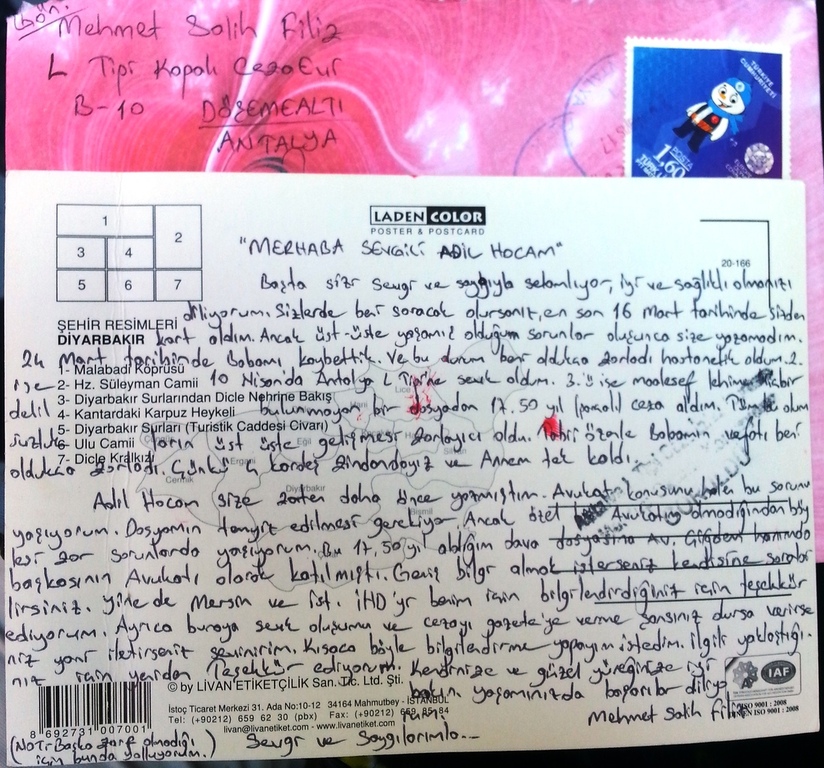 Gön:
Mehmet Salih Filiz
L Tipi Kapalı Cezaevi
B-10 DÖŞEMEALTI
ANTALYA
TÜRKİYE CUMHURİYETİ
POSTA
1.60
1
2
3 4
5 6 7
LADEN COLOR
POSTER & POSTCARD
20-166
"MERHABA SEVGİLİ ADİL HOCAM"
Başta sizi sevgi ve saygıyla selamlıyor, iyi ve sağlıklı olmanızı
diliyorum. Sizlerde beni soracak olursanız, en son 16 Mart tarihinde sizden
kart aldım. Ancak üst-üste yaşamış olduğum sorunlar oluşunca size yazamadım.
24 Mart tarihinde Babamı kaybettik. Ve bu durum beni oldukça zorladı hastanelik oldum. 2.
ise 10 Nisan'da Antalya L Tipi'ne sevk oldum. 3.'ü ise maalesef lehime hiçbir
delil bulunmayan bir dosyadan 17.50 yıl ceza aldım. Tüm bu olum
suzlukların üst üste gelişmesi zorlayıcı oldu. Tabi özelde Babamın vefatı beni
oldukça zorladı. Çünkü 4 kardeş zindandayız ve Annem tek kaldı.
ŞEHİR RESİMLERİ
DİYARBAKIR
1- Malabadi Köprüsü
2- Hz. Süleyman Camii
3- Diyarbakır Surlarından Dicle Nehrine Bakış
4- Kantardaki Karpuz Heykeli
5- Diyarbakır Surları (Turistik Caddesi Civarı)
6- Ulu Camii
7- Dicle Kralkızı
Lice
Hani
Eğil
Ergani
Silvan
Çermik
Diyarbakır
Bismil
Adil Hocam size zaten daha önce yazmıştım. Avukat konusunu halen bu sorunu
yaşıyorum. Dosyamın temyiz edilmesi gerekiyor. Ancak özel Avukatım olmadığından böy
lesi zor sorunlarda yaşıyorum. Bu 17,50 yı aldığım dava dosyasına Av. Çiğdem hanımda
başkasının Avukatı olarak katılmıştı. Geniş bilgi almak isterseniz kendisine sorabi
lirsiniz. Yine de Mersin ve İst. İHD'yi benim için bilgilendirdiğiniz için teşekkür
ediyorum. Ayrıca buraya sevk oluşumu ve cezayı gazete'ye verme şansınız dursa verirse
niz yani iletirseniz sevinirim. Kısaca böyle bilgilendirme yapayım istedim. İlgili yaklaştığı-
nız için yeniden Teşekkür ediyorum. Kendinize ve güzel yüreğinize iyi
bakın yaşamınızda başarılar diliyo
rum!
Mehmet Salih Filiz
Sevgi ve Saygılarımla...
(NOT: Başka zarf olmadığı
için bunda yolluyorum.)
© by LİVAN ETİKETÇİLİK San. Tic. Ltd. Şti.
İstoç Ticaret Merkezi 31. Ada No:10-12 34164 Mahmutbey - İSTANBUL
Tel: (+90212) 659 62 30 (pbx) Fax: (+90212) 659 85 84
livan@livanetiket.com - www.livanetiket.com
8 692731 007001
IAF
ISO 9001 : 2008
EN ISO 9001 : 2008